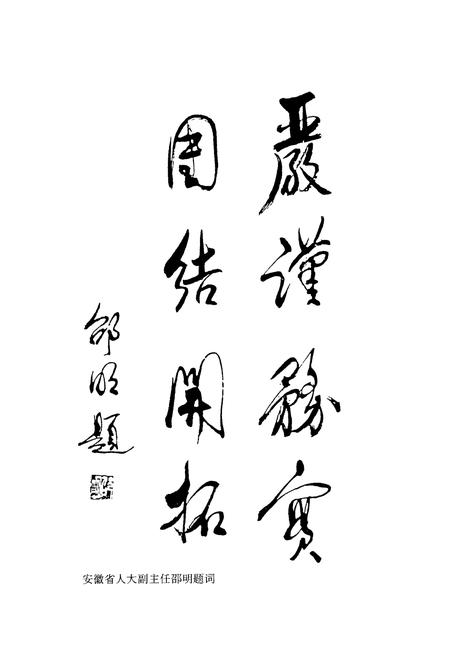 嚴謹務實
團结開拓
邵明題
安徽省人大副主任邵明题词